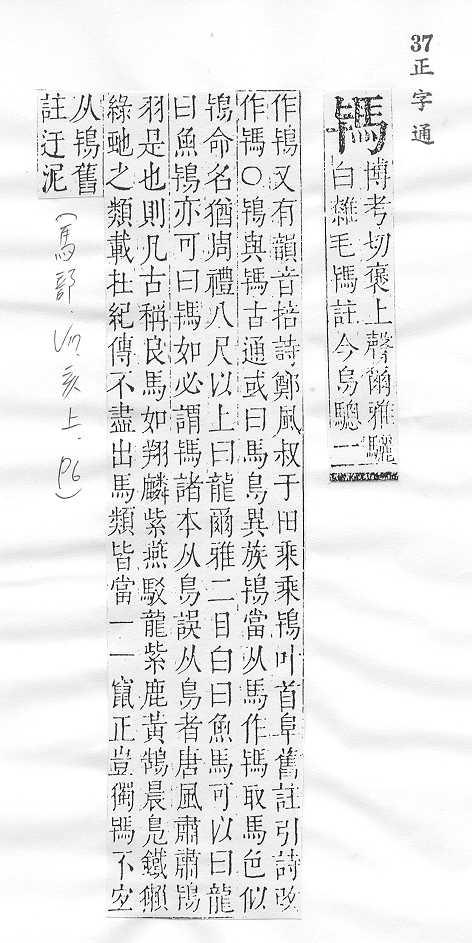 37正字通
駂
博考切褒上聲爾雅驪
白雜毛駂註今烏驄一
作鴇又有韻音掊詩鄭風叔于田乘乘鴇叶首阜舊註引詩改
作駂○鴇與駂古通或曰馬鳥異族鴇當从馬作駂取馬色似
鴇命名猶周禮八尺以上曰龍爾雅二目白曰魚馬可以曰龍
曰魚鴇亦可曰駂如必謂駂諸本从鳥誤从鳥者唐風肅肅鴇
羽是也則凡古稱良馬如翔麟紫燕駁龍紫鹿黃鵠晨鳧鐵獺
綠虵之類載扗紀傳不盡出馬類皆當一一竄正豈獨駂不宐
从鴇舊
註迂泥
(馬部．VII亥上．P6)